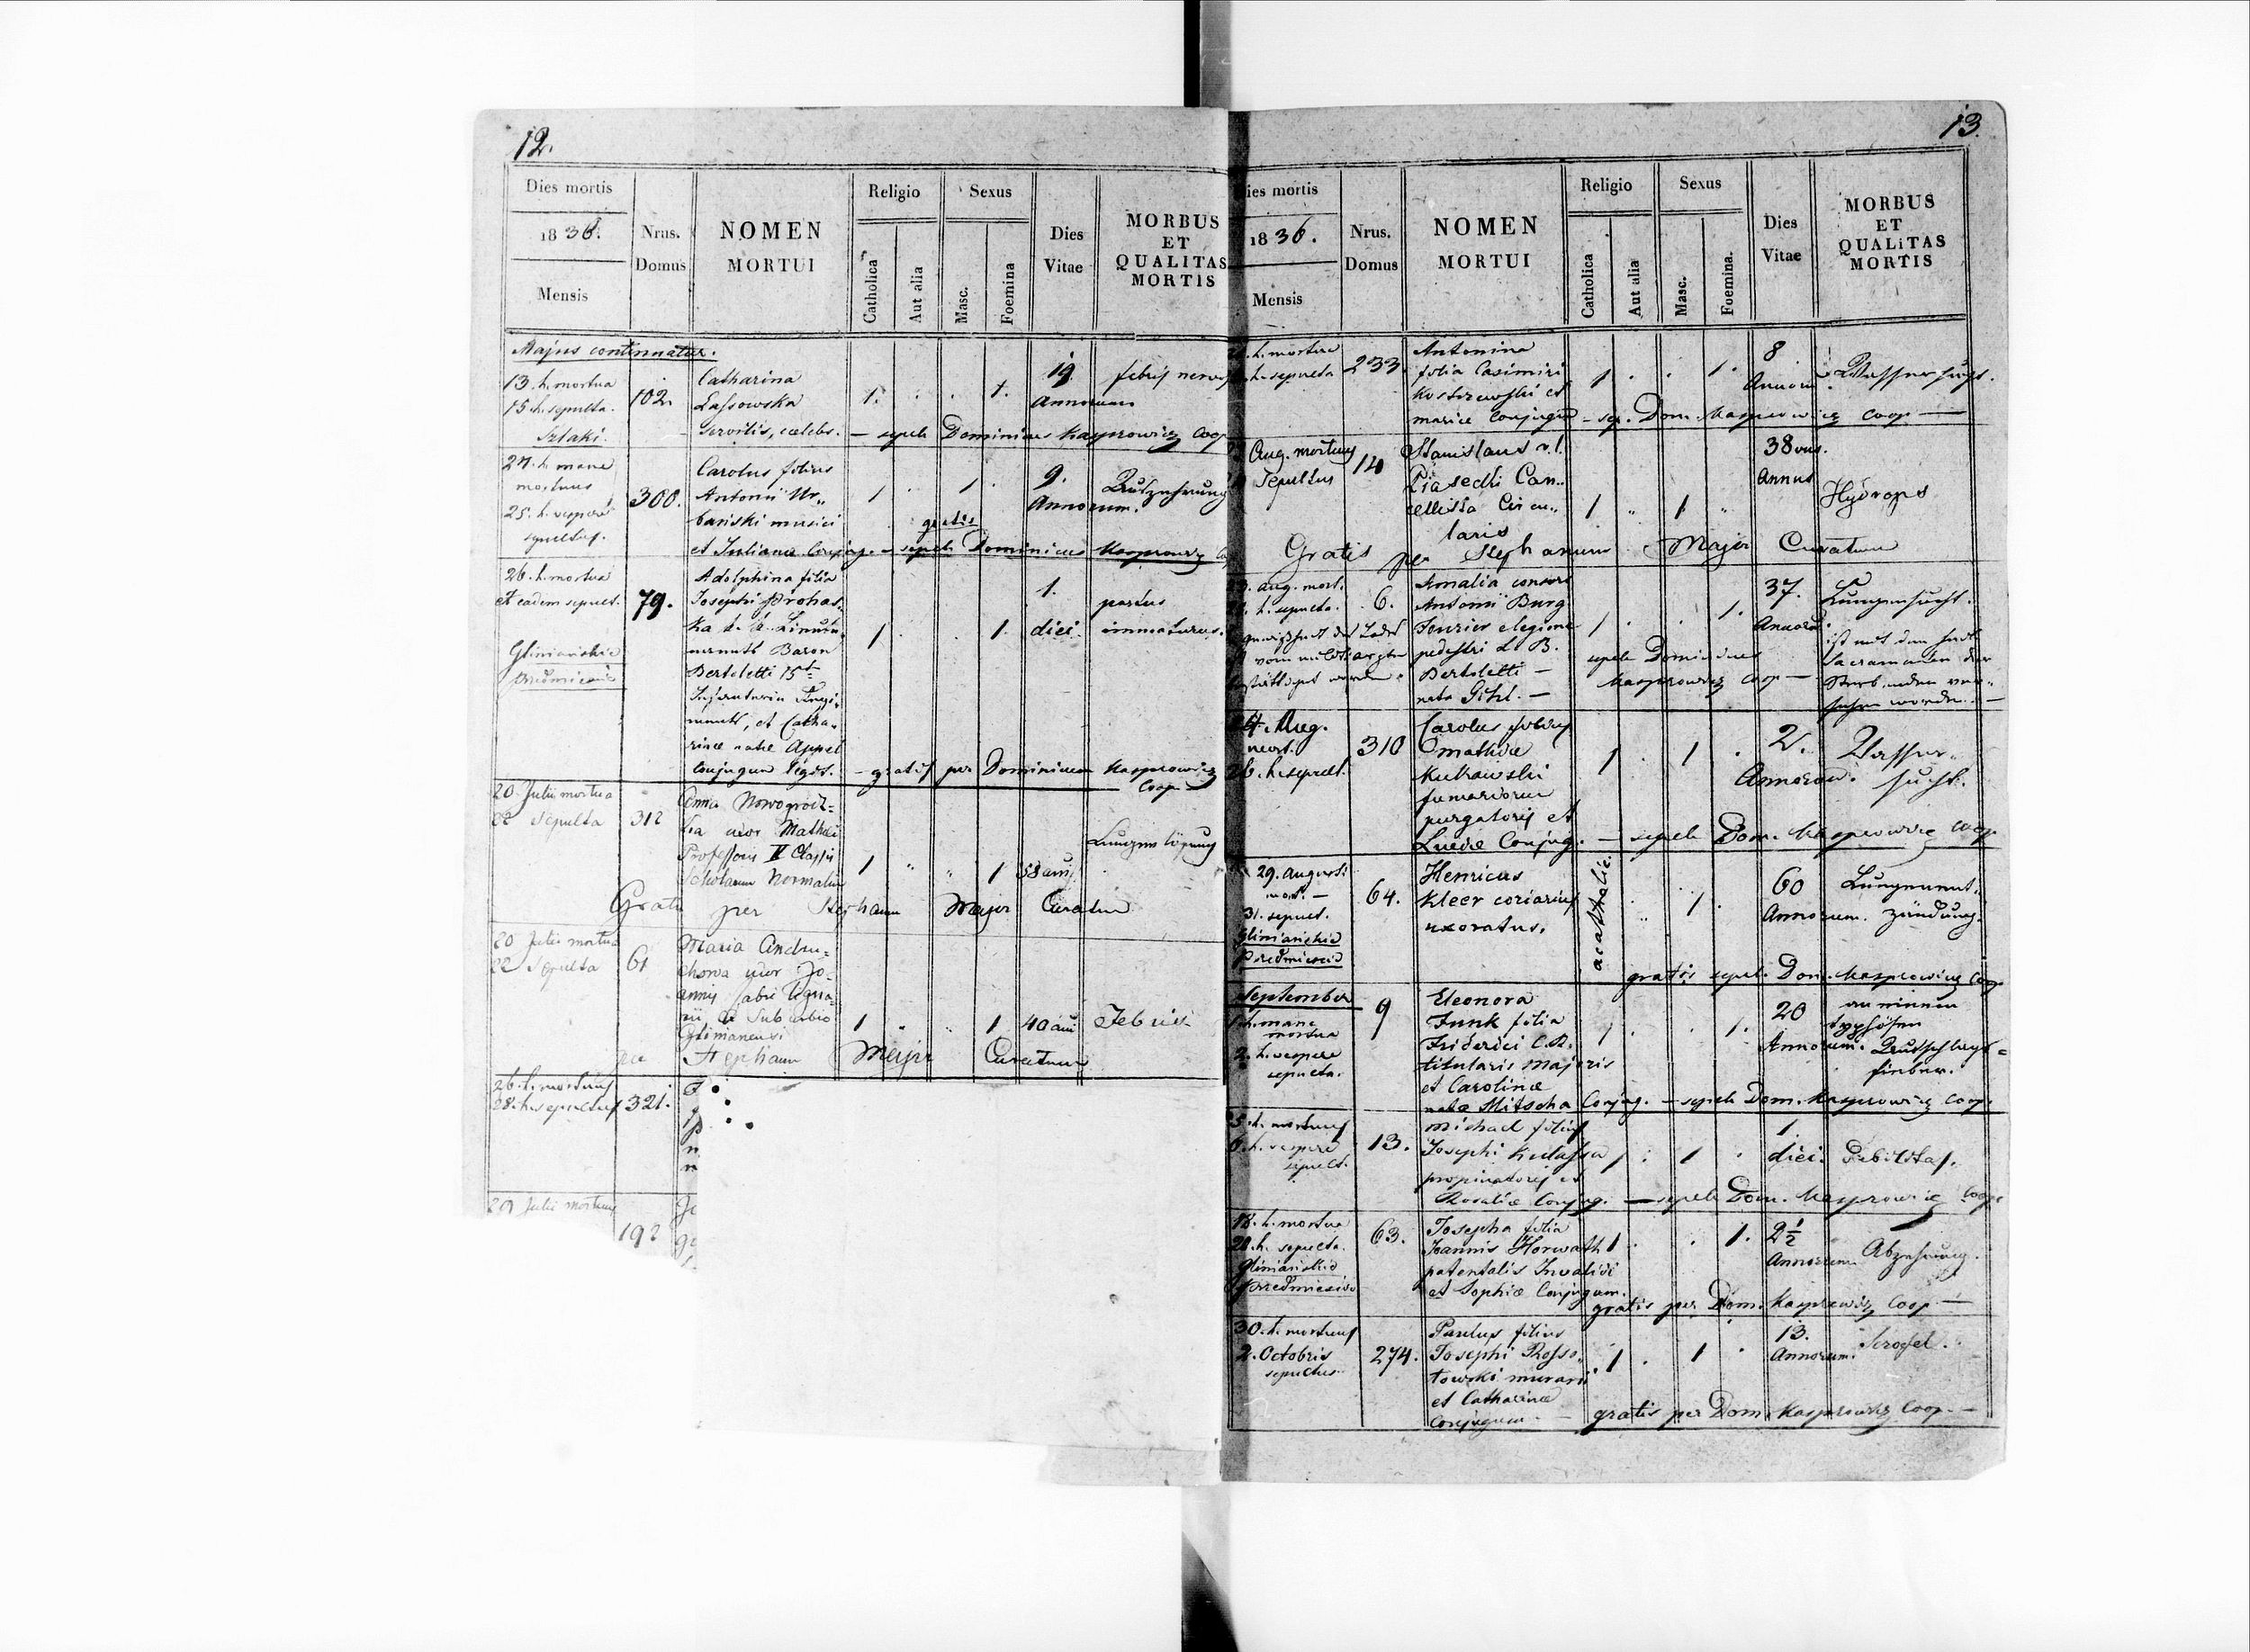 12.
Dies mortis
1836.
Mensis
Nrus.
Domus
NOMEN
MORTUI
Religio
Catholica
Aut alia
Sexus
Masc.
Foemina
Dies
Vitae
MORBUS
ET
QUALITAS
MORTIS
Majus continuatur.
13. h. mortua
15. h. sepulta.
Szlaki.
102.
Catharina
Lassowska
servilis, caelebs.
1. 1.
19.
Annorum
febris nerv
– sepel. Dominicus Kasprowicz Coop
24. h. mane
mortuus
25. h. vespere
sepultus.
300.
Carolus filius
Antonii Ur„
bański musici
et Julianae Conjug.
1 1
9.
Annorum.
gratis
– sepel. Dominicus Kasprowicz
26. h. mortua
et eadem sepult.
Gliniańskie
79.
Adolphina filia
Josephi Prohas„
Baron
Bertoletti 15t
Infanterie Regi„
ments, et Catha„
rinae natae Appel
Conjugum legit.
1 1
1.
diei.
partus
immaturus.
– gratis per Dominicum Kasprowicz
Coop
20 Julii mortua
22 Sepulta
312
Anna Nowogrodz=
ka uxor Mathaei
Professoris II Classis
Scholarum Normalium
1 1
Gratis per Stephanum Major Curatum
20 Julii mortua
22 Sepulta
61
Maria Andru=
chowa uxor Jo=
annis fabri ligna=
rii de Suburbio
Glinianensi
1 1
40 anni
Febris
per Stephanum Major Curatum
26. h. mortuus
28. h. sepultus
321.
29 Julii mortuus
192
13.
ies mortis
1836.
Mensis
Nrus.
Domus
NOMEN
MORTUI
Religio
Catholica
Aut alia
Sexus
Masc.
Foemina.
Dies
Vitae
MORBUS
ET
QUALiTAS
MORTIS
h. mortua
h. sepulta
233.
Antonina
filia Casimiri
Kostrzewski et
Mariae Conjugum
1 1.
8
Annorum.
Wassersucht.
– sep. Dom. Kasprowicz Coop –
Aug. mortuus
Sepultus
14
Stanislaus
Piasecki Can„
cellista Circu„
laris
1 „ 1 „
38
Annus
Hydrops
Gratis per Stephanum Major Curatum
aug. mort.
h. sepulta.
6.
Amalia consors
Antonii Burg
Fourier
pedestri L. B.
Bertoletti –
nata Göhl. –
1 1.
37.
Annorum.
Lungensucht.
ist mit den heil.
Sacramenten der
Sterbenden ver„
sehen worden. –
sepel. Dominicus
Kasprowicz Coop –
24. Aug.
mort.
26. h. sepult.
310
Carolus filius
Mathiae
Kukawski
fumariorum
purgatoris et
Luciae Conjug.
1 1
2.
Annorum.
Wasser„
sucht.
– sepel. Dom. Kasprowicz Coop.
29. Augusti
mort. –
31. sepult.
Gliniańskie
Przedmieście
64.
Henricus
Kleer coriarius
uxoratus.
acatholic.
1.
60
Annorum.
Lungenent„
zündung.
gratis sepel. Dom. Kasprowicz Coop.
September
1. h. mane
mortua
2. h. vespere
sepulta.
9
Eleonora
Funk filia
Friderici C. R.
titularis Majoris
et Carolinae
natae Mitscha Conjug.
1 1.
20
Annorum.
typhösen
– sepel. Dom. Kasprowicz Coop.
5. h. mortuus
6. h. vespere
sepult.
13.
Michael filius
Josephi Kulassa
propinatoris et
Rosaliae Conjug.
1 1
1.
diei.
Debilitas.
– sepel. Dom. Kasprowicz Coop.
18. h. mortua
20. h. sepulta.
Gliniańskie
Przedmieście
63.
Josepha filia
Joannis Horwath
patentalis Invalidi
et Sophiae Conjugum.
1 1.
2½
Annorum
Abzehrung.
gratis per Dom. Kasprowicz Coop –
30. h. mortuus
2. Octobris
sepultus.
274.
Paulus filius
Josephi Rosso„
towski murarii
et Catharinae
Conjugum –
1 1
13.
Annorum.
Scrofel.
gratis per Dom. Kasprowicz Coop. –